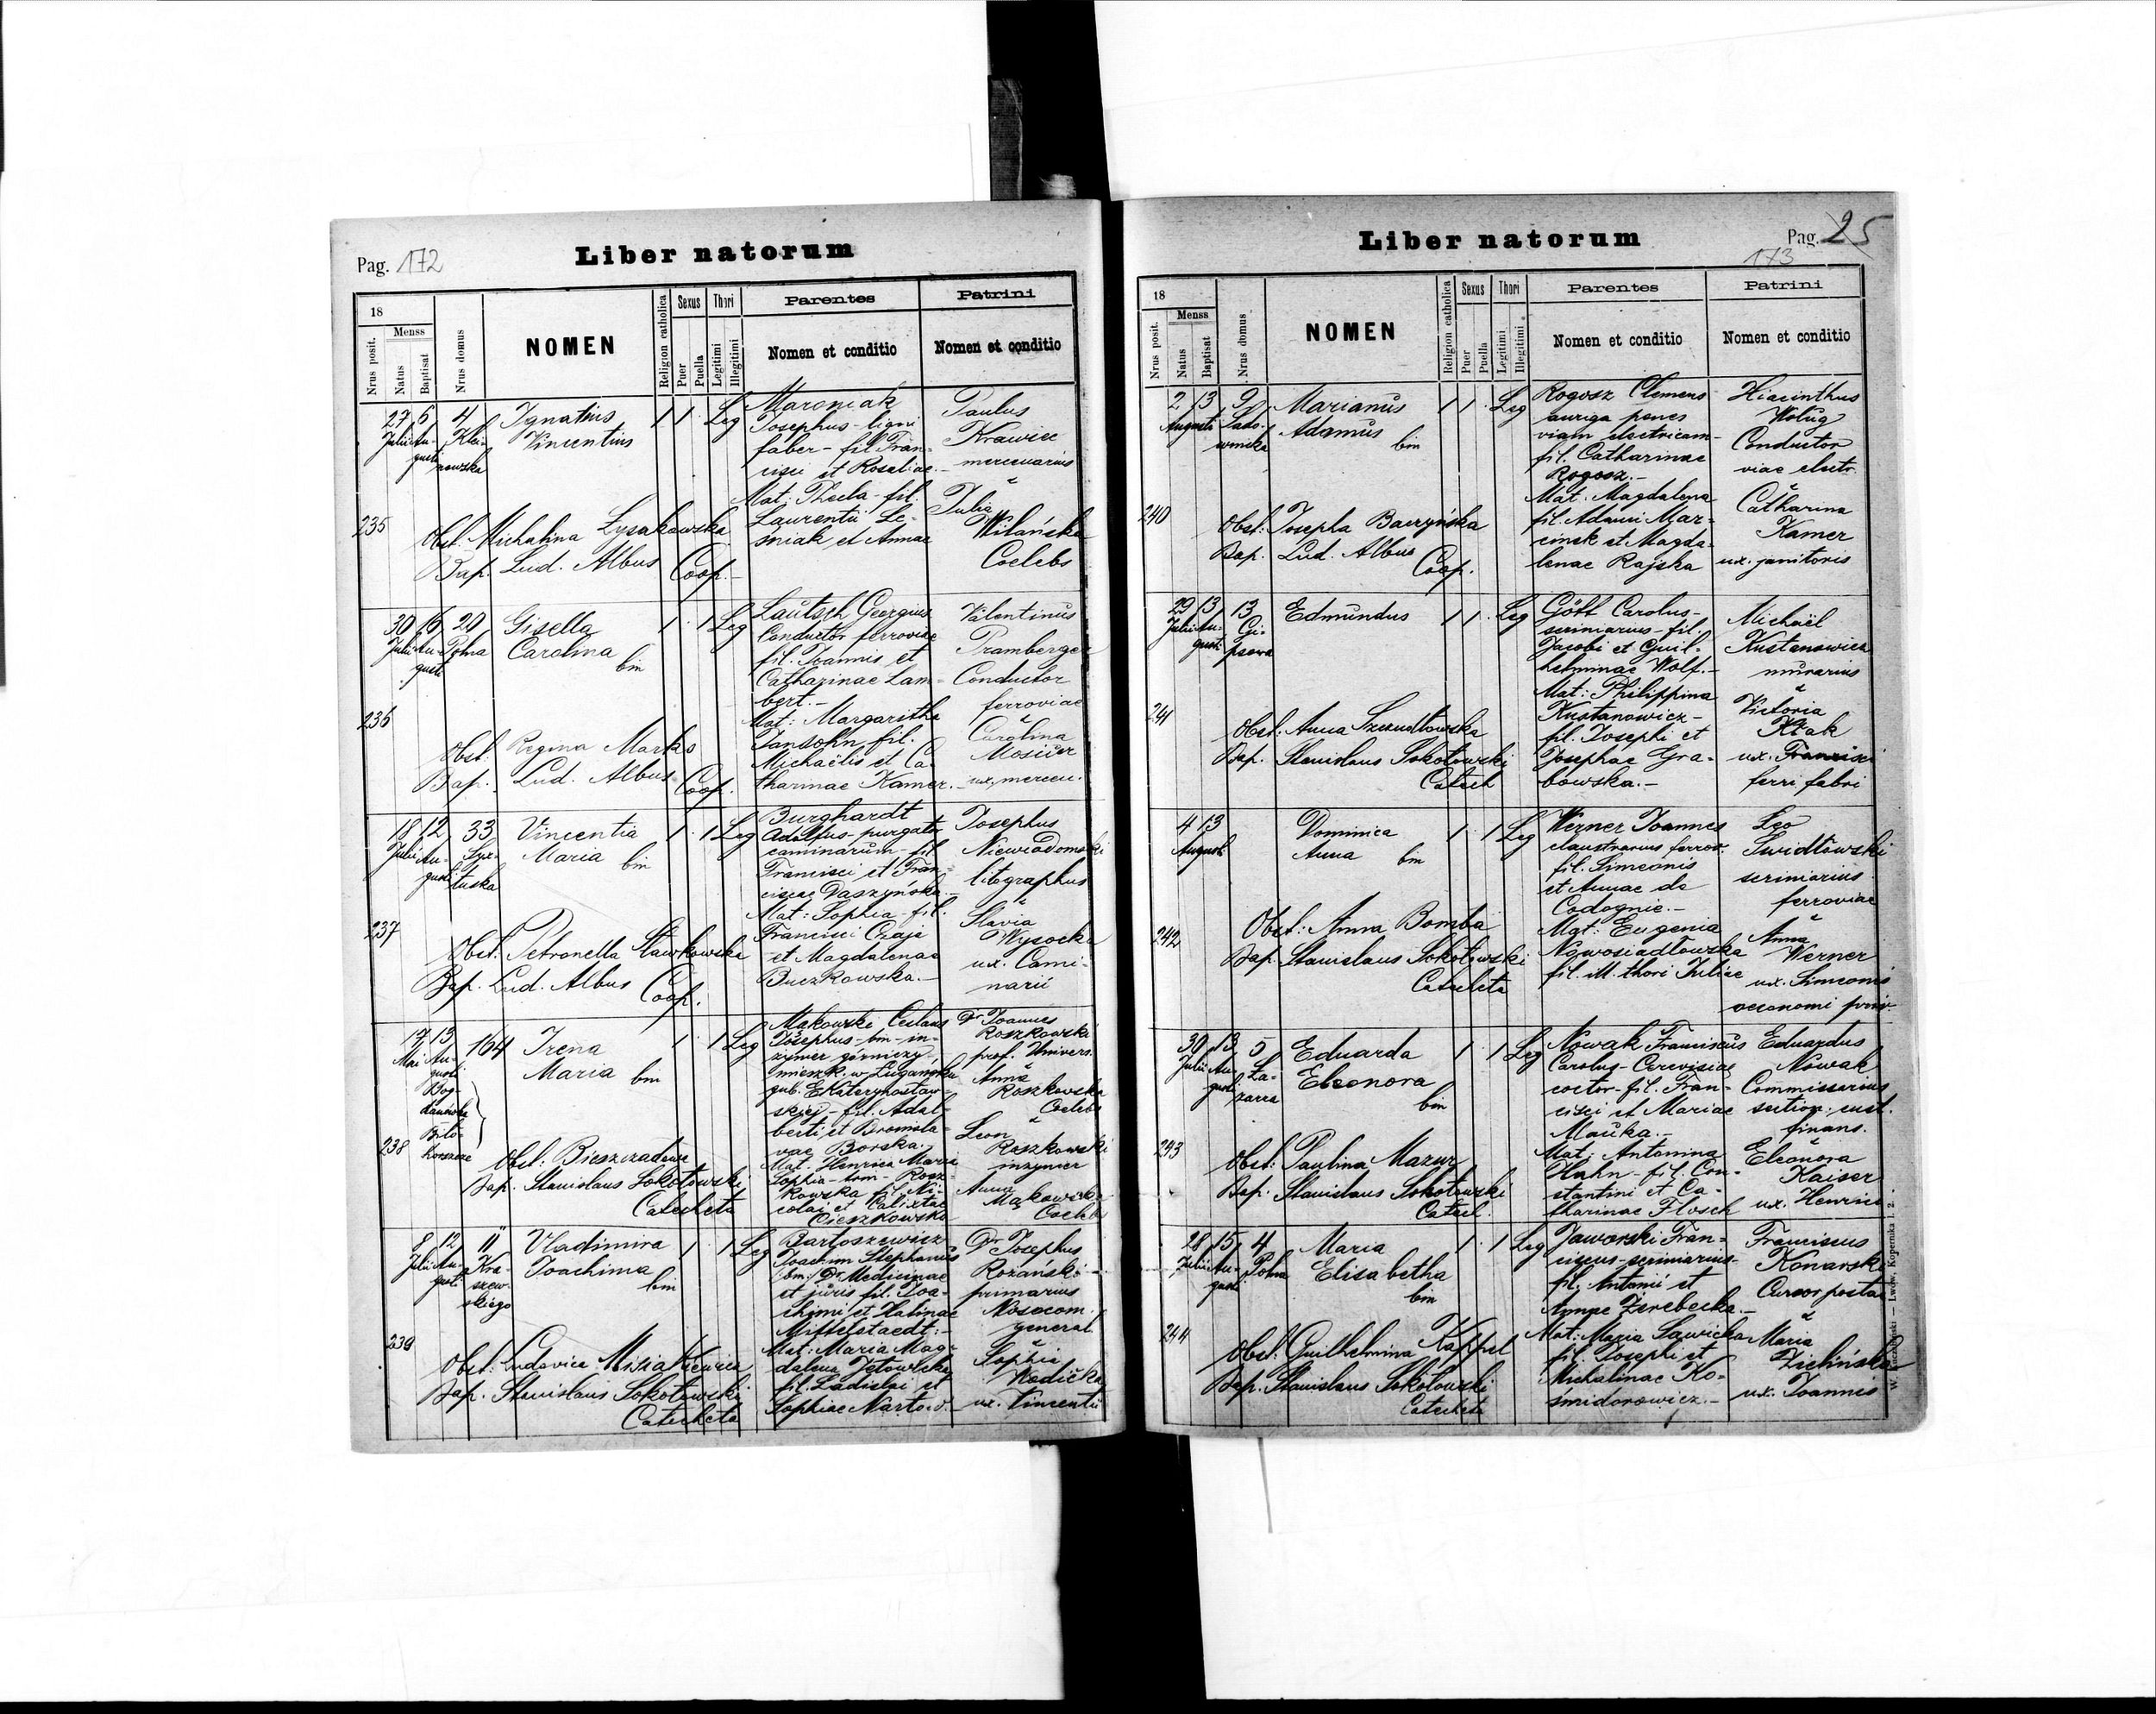 Pag. 172
Liber natorum
18
Nrus posit.
Menss
Natus
Baptisat
Nrus domus
NOMEN
Religion catholica
Sexus
Puer
Puella
Thori
Legitimi
Illegitimi
Parentes
Nomen et conditio
Patrini
Nomen et conditio
235
27 Julii
6 Augusti
4
Ignatius
Vincentius
1 1 Leg
Maroniak
Josephus - ligni
faber - fil. Fran-
cisci et Rosaliae.-
Mat: Thecla - fil.
Laurentii Le-
śniak et Annae
Paulus
Krawiec
mercenarius
Julia
Wilańska
Coelebs
Obst. Michalina Łysakowska
Bap. Lud. Albus Coop.-
236
30 Julii
6 Augusti
20
Polna
Gisella
Carolina
bin
1 1 Leg
Lautsch Georgius
Conductor ferroviae
fil. Joannis et
Catharinae Lam-
bert.-
Mat: Margaritha
Jansohn fil.
Michaëlis et Ca-
tharinae Kamer.-
Valentinus
Pramberger
Conductor
ferroviae
Carolina
Mosiier
ux. mercen.
Obst. Regina Marks
Bap. Lud. Albus Coop.
237
18 Julii
12 Augusti
33
Syx-
tuska
Vincentia
Maria
bin
1 1 Leg
Burghardt
Adolfus - purgator
caminarum - fil.
Francisci et Fran-
ciscae Daszyńska.-
Mat: Sophia - fil.
Francisci Czaja
et Magdalenae
Buczkowska.-
Josephus
Niewiadomski
litographus
Slavia
Wysocka
ux. Cami-
narii
Obst. Petronella Sławkowska
Bap. Lud. Albus Coop.
238
17 Mai
13 Augusti
164
Irena
Maria
bin
1 1 Leg
Mąkowski Ceslaus
Josephus - bin - in-
żynier górniczy
mieszk. w Ługańsku
gub. Ekaterynosław-
skiej - fil. Adal-
berti et Bronisla-
vae Borska.-
Mat. Henrica Maria
Sophia - trin - Rosz-
kowska fil. Ni-
colai et Calixtae
Cieszkowska
Dr Joannes
Roszkowski
prof. Univers.
Anna
Roszkowska
Coelebs
Leon
Roszkowski
inżynier
Anna
Mąkowska
Coelebs
Obst: Bieszczadowa
Bap. Stanislaus Sokołowski
Catecheta
239
8 Julii
12 Augusti
11
Kra-
szew-
skiego
Vladimira
Joachima
bin
1 1 Leg
Bartoszewicz
Joachim Stephanus
bin. Dr Medicinae
et juris fil. Joa-
chimi et Halinae
Mittelstaedt.-
Mat: Maria Mag-
dalena
fil. Ladislai et
Sophiae
Dr Josephus
Rożański
primarius
Nosocom.
general.
Sophia
Wodička
ux. Vincentii
Obst: Ludovica Misiakiewicz
Bap. Stanislaus Sokołowski
Catecheta
Liber natorum
Pag. 25
173
18
Nrus posit.
Menss
Natus
Baptisat
Nrus domus
NOMEN
Religion catholica
Sexus
Puer
Puella
Thori
Legitimi
Illegitimi
Parentes
Nomen et conditio
Patrini
Nomen et conditio
240
2 13
Augusti
9
Sado-
wnicka
Marianus
Adamus
bin
1 1 Leg
Rogosz Clemens
auriga penes
viam electricam
fil. Catharinae
Rogosz.-
Mat. Magdalena
fil. Adami Mar-
cinek et Magda-
lenae Rajska
Hiacinthus
Woług
Conductor
viae electr.
Catharina
Kamer
ux. janitoris
Obst: Josepha Baczyńska
Bap. Lud. Albus
Coop.
241
29 Julii
13 Augusti
13
Gi-
psowa
Edmundus
1 1 Leg
Gött Carolus-
scriniarius - fil.
Jacobi et Guil-
helminae Wolf.-
Mat: Philippina
Kustanowicz-
fil. Josephi et
Josephae Gra-
bowska.-
Michaël
Kustanowicz
murarius
Victoria
Ptak
ux. Francisci
ferri fabri
Obst. Anna Szmudłowska
Bap. Stanislaus Sokołowski
Catech
242
4 13
Augusti
Dominica
Anna
bin
1 1 Leg
Werner Joannes
claustrarius ferrov.
fil. Simeonis
et Annae de
Codognie.-
Mat: Eugenia
Nowosiadłowska
fil. ill. thori Juliae
Leo
Swidłowski
scriniarius
ferroviae
Anna
Werner
ux. Simeonis
oeconomi priv.
Obst: Anna Bomba
Bap. Stanislaus Sokołowski
Catecheta
243
30 Julii
13 Augusti
5
Ła-
zarza
Eduarda
Eleonora
bin
1 1 Leg
Nowak Franciscus
Carolus - Cerevisiae
coctor - fil. Fran-
cisci et Mariae
Mauka.-
Mat: Antonina
Hahn - fil. Con-
stantini et Ca-
tharinae Flosch
Eduardus
Nowak
Commissarius
finans.
Eleonora
Kaiser
ux. Henrici
Obst: Paulina Mazur
Bap. Stanislaus Sokołowski
Catech.
244
28 Julii
15 Augusti
4
Polna
Maria
Elisabetha
bin
1 1 Leg
Jaworski Fran-
ciscus - scriniarius-
fil. Antonii et
Annae Zerebecka.-
Mat: Maria Sawicka
fil. Josephi et
Michalinae Ko-
śmidorowicz.-
Franciscus
Konarski
Cursor postae
Maria
Zielińska
ux. Joannis
Obst. Guilhelmina Kappel
Bap. Stanislaus Sokołowski
Catecheta
Lwów, Kopernika l. 2.